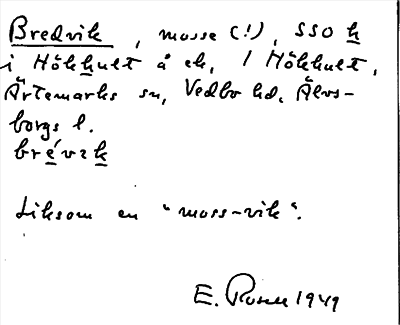 Bredvik, mosse (!), SSO k
i Hökhult å ek, i Hökhult,
Ärtemarks sn, Vedbo hd, Älvs-
borgs l.
brévık
Liksom en "moss-vik".
E. Rosell 1949